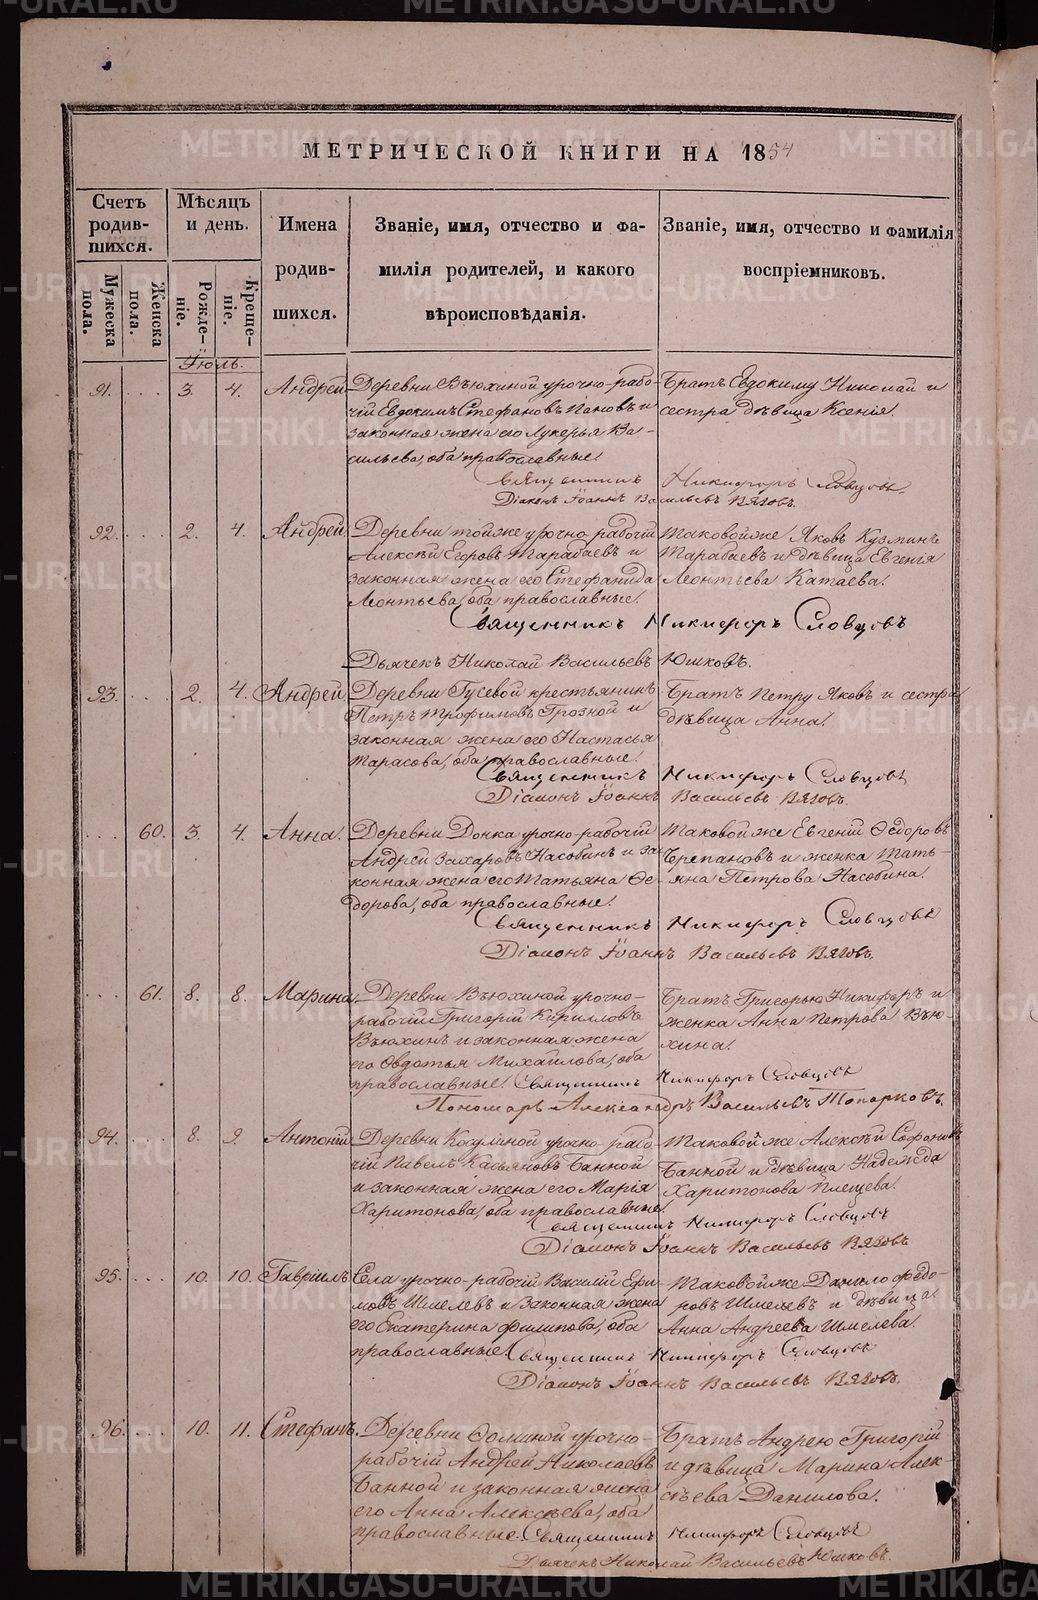 МЕТРИЧЕСКОЙ КНИГИ НА 1854
Счетъ родив-шихся.
Мужеска пола.
Женска пола.
Мѣсяцъ и день.
Рожде-ніе.
Креще-ніе.
Имена родив-шихся.
Званіе, имя, отчество и фа-
милія родителей, и какого
вѣроисповѣданія.
Званіе, имя, отчество и фамилія
воспріемниковъ.
Іюль.
91. 3. 4. Андрей
Деревни Вьюхиной урочно-рабо-
чій Евдокимъ Стефановъ Пановъ и
законная жена его Лукерья Ва-
сильева, оба православные.
Братъ Евдокиму Николай и
сестра дѣвица Ксенія.
Священникъ Никифоръ Словцовъ.
Діаконъ Іоаннъ Васильевъ Вяговъ.
92. 2. 4. Андрей
Деревни тойже урочно-рабочій
Алексѣй Егоровъ Тарабаевъ и
законная жена его Стефанида
Леонтьева, оба православные.
Таковойже Яковъ Кузминъ
Тарабаевъ и дѣвица Евгенія
Леонтьева Катаева.
Священникъ Никифоръ Словцовъ
Дьячекъ Николай Васильевъ Юшковъ.
93. 2. 4. Андрей
Деревни Гусевой крестьянинъ
Петръ Трофимовъ Грозной и
законная жена его Настасья
Тарасова, оба православные.
Братъ Петру Яковъ и сестра
дѣвица Анна.
Священникъ Никифоръ Словцовъ
Діаконъ Іоаннъ Васильевъ Вяговъ.
60. 3. 4. Анна.
Деревни Донка урочно-рабочій
Андрей Захаровъ Насобинъ и за-
конная жена его Татьяна Ѳе-
дорова, оба православные.
Таковой же Евгеній Ѳедоровъ
Черепановъ и женка Тать-
яна Петрова Насобина.
Священникъ Никифоръ Словцовъ
Діаконъ Іоаннъ Васильевъ Вяговъ.
61. 8. 8. Марина.
Деревни Вьюхиной урочно-
рабочій Григорій Кирилловъ
Вьюхинъ и законная жена
его Овдотья Михайлова, оба
православные.
Братъ Григорью Никифоръ и
женка Анна Петрова Вью-
хина.
Священникъ Никифоръ Словцовъ
Пономарь Александръ Васильевъ Топорковъ.
94. 8. 9. Антоній
Деревни Косулиной урочно-рабо-
чій Павелъ Касьяновъ Банной
и законная жена его Марія
Харитонова, оба православные.
Таковой же Алексѣй Софоновъ
Банной и дѣвица Надежда
Харитонова Плещева.
Священникъ Никифоръ Словцовъ
Діаконъ Іоаннъ Васильевъ Вяговъ
95. 10. 10. Гавріилъ
Села урочно-рабочій Василій Ефи-
мовъ Шмелевъ и законная жена
его Екатерина Филипова, оба
православные.
Таковойже Данило Федо-
ровъ Шмелевъ и дѣвица
Анна Андреева Шмелева.
Священникъ Никифоръ Словцовъ
Діаконъ Іоаннъ Васильевъ Вяговъ.
96. 10. 11. Стефанъ.
Деревни Ѳоминой урочно-
рабочій Андрей Николаевъ
Банной и законная жена
его Анна Алексѣева, оба
православные.
Братъ Андрею Григорій
и дѣвица Марина Алек-
сѣева Данилова.
Священникъ Никифоръ Словцовъ
Дьячекъ Николай Васильевъ Юшковъ.
METRIKI.GASO-URAL.RU